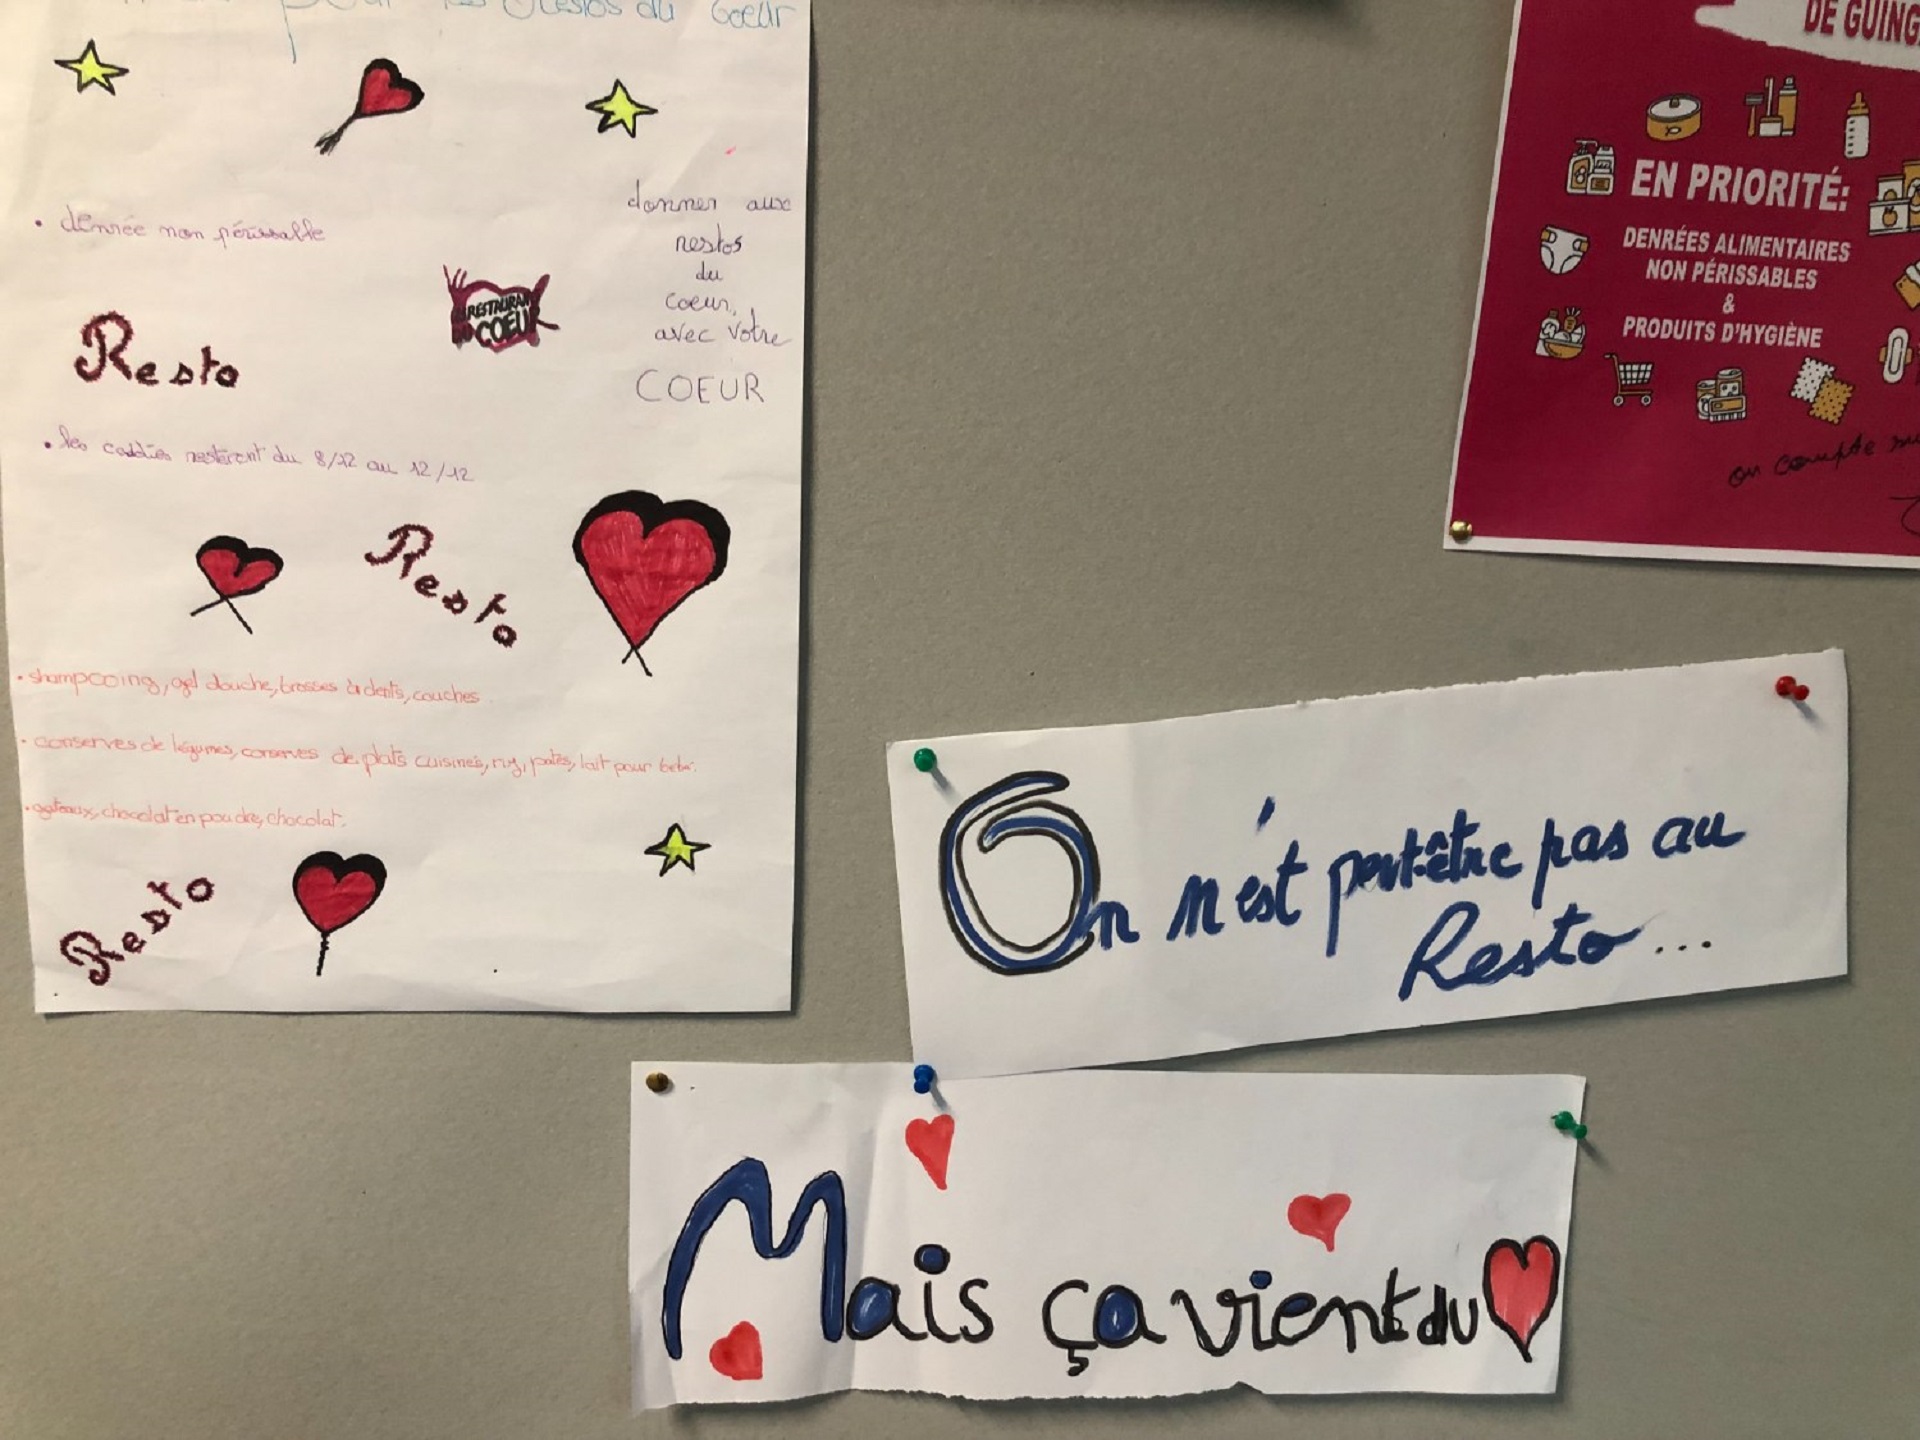 pour les Restos du Coeur
• denrée non périssable
donner aux
restos
du
coeur,
avec votre
COEUR
RESTAURANT
DU COEUR
Resto
• les caddies resteront du 8/12 au 12/12
Resto
• shampooing, gel douche, brosses à dents, couches
• conserves de légumes, conserves de plats cuisinés, riz, pâtes, lait pour bébé.
• gateaux, chocolat en poudre, chocolat.
Resto
DE GUING
EN PRIORITÉ:
DENRÉES ALIMENTAIRES
NON PÉRISSABLES
&
PRODUITS D'HYGIÈNE
on compte su
On n'est peut-être pas au
Resto...
Mais ça vient du